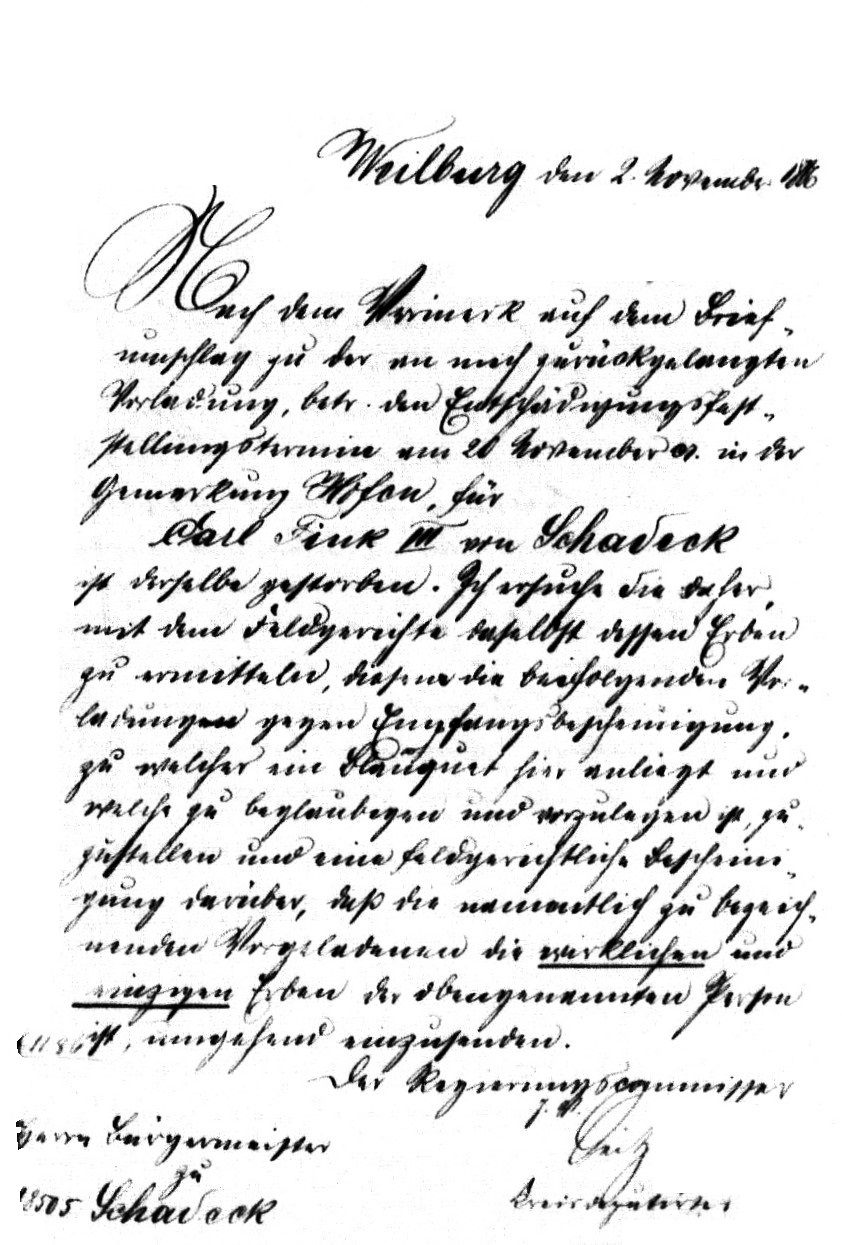 Weilburg den 2. November
Nach dem Vermerk auf dem Brief-
umschlag zu der an mich zurückgelangten
Vorladung, betr. den Entschädigungsfest-
stellungstermin am 20 November cr. in der
Gemarkung Hofen, für
Carl Fink III von Schadeck
ist derselbe gestorben. Ich ersuche Sie daher,
mit dem Feldgerichte daselbst dessen Erben
zu ermitteln, diesen die beifolgenden Vor-
ladungen gegen Empfangsbescheinigung,
zu welcher ein Blanquet hier anliegt und
welche zu beglaubigen und vorzulegen ist, zu-
zustellen und eine feldgerichtliche Bescheini-
gung darüber, daß die namentlich zu bezeich-
nenden Vorgeladenen die wirklichen und
einzigen Erben der obengenannten Person
ist, umgehend einzusenden.
Der Regierungscommissar
J. V.
Kreisdeputirter
Herrn Bürgermeister
zu
Schadeck